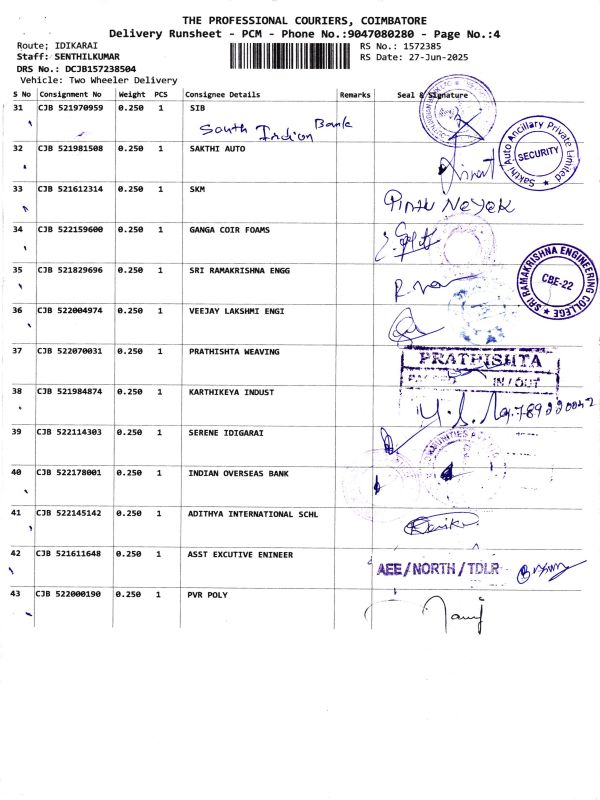 THE PROFESSIONAL COURIERS, COIMBATORE
Delivery Runsheet - PCM - Phone No.:9047080280 - Page No.:4
Route; IDIKARAI
RS No.: 1572385
Staff: SENTHILKUMAR
RS Date: 27-Jun-2025
DRS No.: DCJB157238504
Vehicle: Two Wheeler Delivery
S No Consignment No Weight PCS Consignee Details Remarks Seal & Signature
31 CJB 521970959 0.250 1 SIB
South Indian Bank
32 CJB 521981508 0.250 1 SAKTHI AUTO
Sakthi Auto Ancillary Private Limited
SECURITY
33 CJB 521612314 0.250 1 SKM
34 CJB 522159600 0.250 1 GANGA COIR FOAMS
35 CJB 521829696 0.250 1 SRI RAMAKRISHNA ENGG
SRI RAMAKRISHNA ENGINEERING COLLEGE
CBE-22
36 CJB 522004974 0.250 1 VEEJAY LAKSHMI ENGI
37 CJB 522070031 0.250 1 PRATHISHTA WEAVING
PRATHISHTA
IN / OUT
38 CJB 521984874 0.250 1 KARTHIKEYA INDUST
39 CJB 522114303 0.250 1 SERENE IDIGARAI
40 CJB 522178001 0.250 1 INDIAN OVERSEAS BANK
41 CJB 522145142 0.250 1 ADITHYA INTERNATIONAL SCHL
42 CJB 521611648 0.250 1 ASST EXCUTIVE ENINEER
AEE / NORTH / TDLR
43 CJB 522000190 0.250 1 PVR POLY